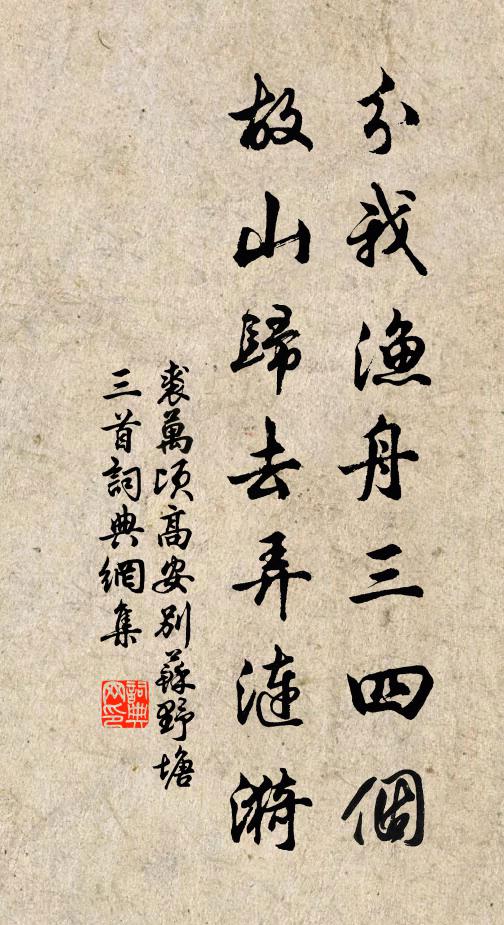 分我漁舟三四個
故山歸去弄漣漪
裘萬頃高安別蘇野塘
三首詞典網集
詞典
网印